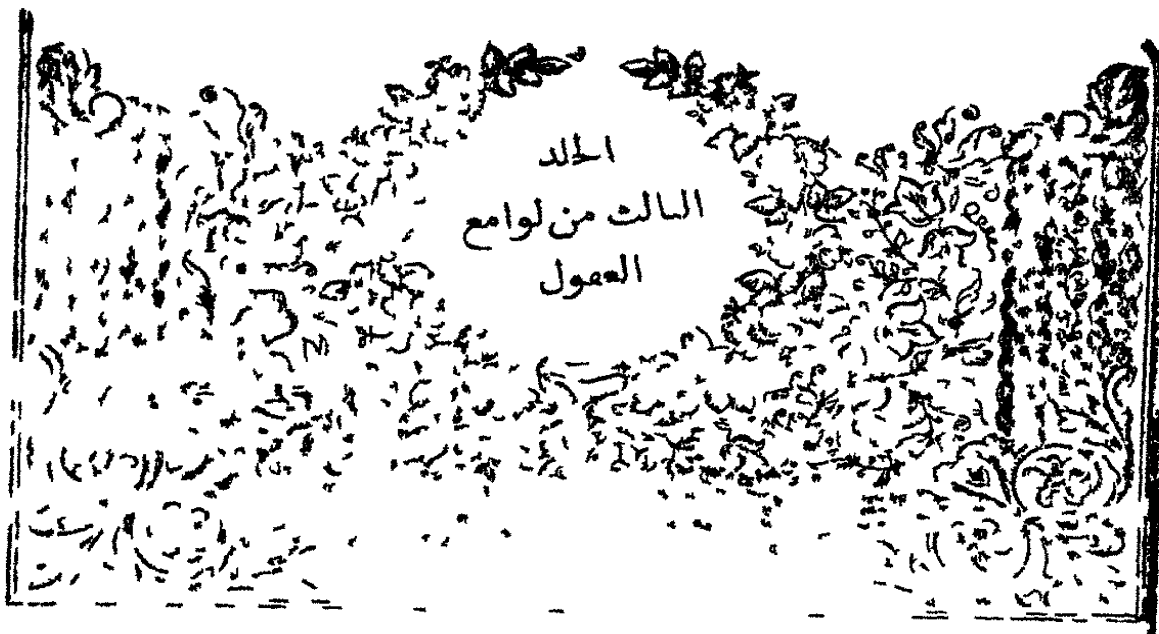 الجلد
الثالث من لوامع
العقول